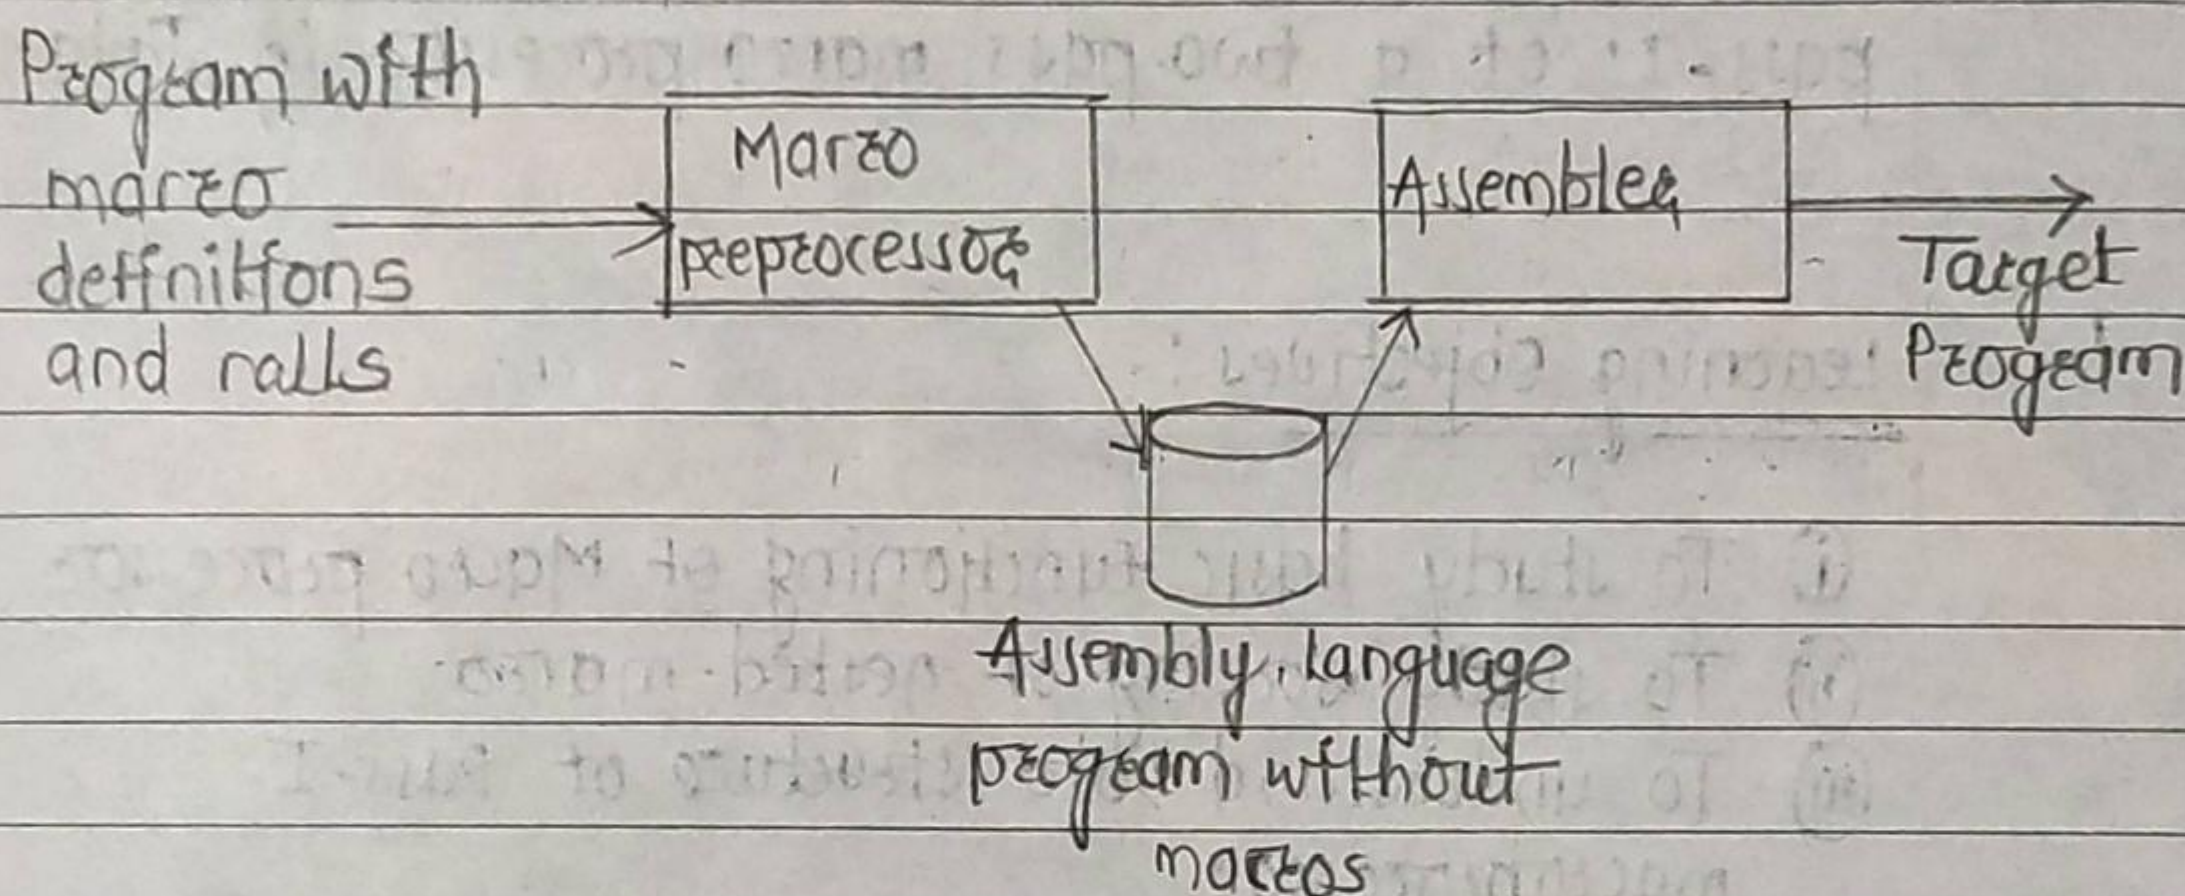 Program with
macro
definitions
and calls
Macro
preprocessor
Assembler
Target
Program
Assembly language
program without
macros